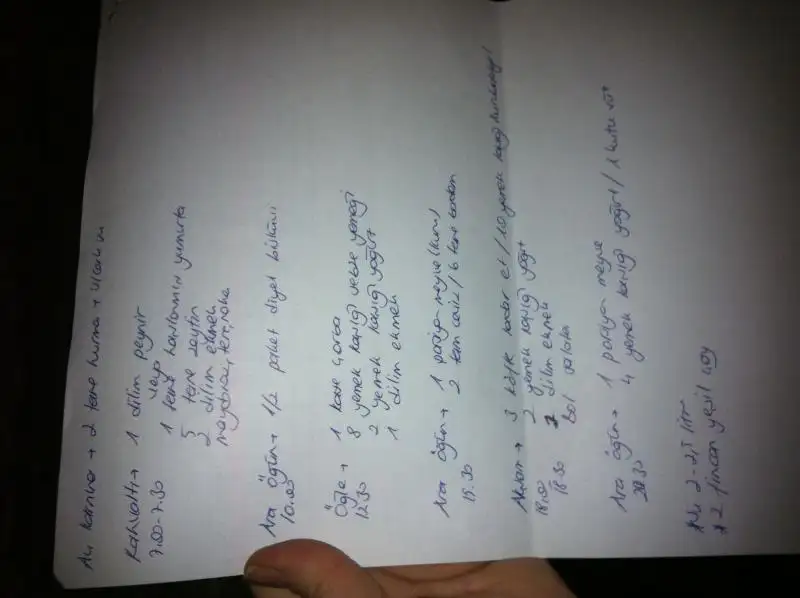 Aç karnına → 2 tane hurma +
Kahvaltı → 1 dilim peynir
7.00-7.30 veya
1 tane haşlanmış yumurta
5 tane zeytin
2 dilim ekmek
maydanoz, tere, roka
Ara Öğün → 1/2 paket diyet bisküvi
10.00
Öğle → 1 kase çorba
12.30 8 yemek kaşığı sebze yemeği
2 yemek kaşığı yoğurt
1 dilim ekmek
Ara Öğün → 1 porsiyon meyve (kuru)
15.30 2 tam ceviz / 6 tane badem
Akşam → 3 köfte kadar et / 10 yemek kaşığı kurubaklagil
18.00 2 yemek kaşığı yoğurt
18.30 dilim ekmek
bol salata
Ara Öğün → 1 porsiyon meyve
4 yemek kaşığı yoğurt / 1 kutu süt
*Su 2-2,5 litre
*2 fincan yeşil çay